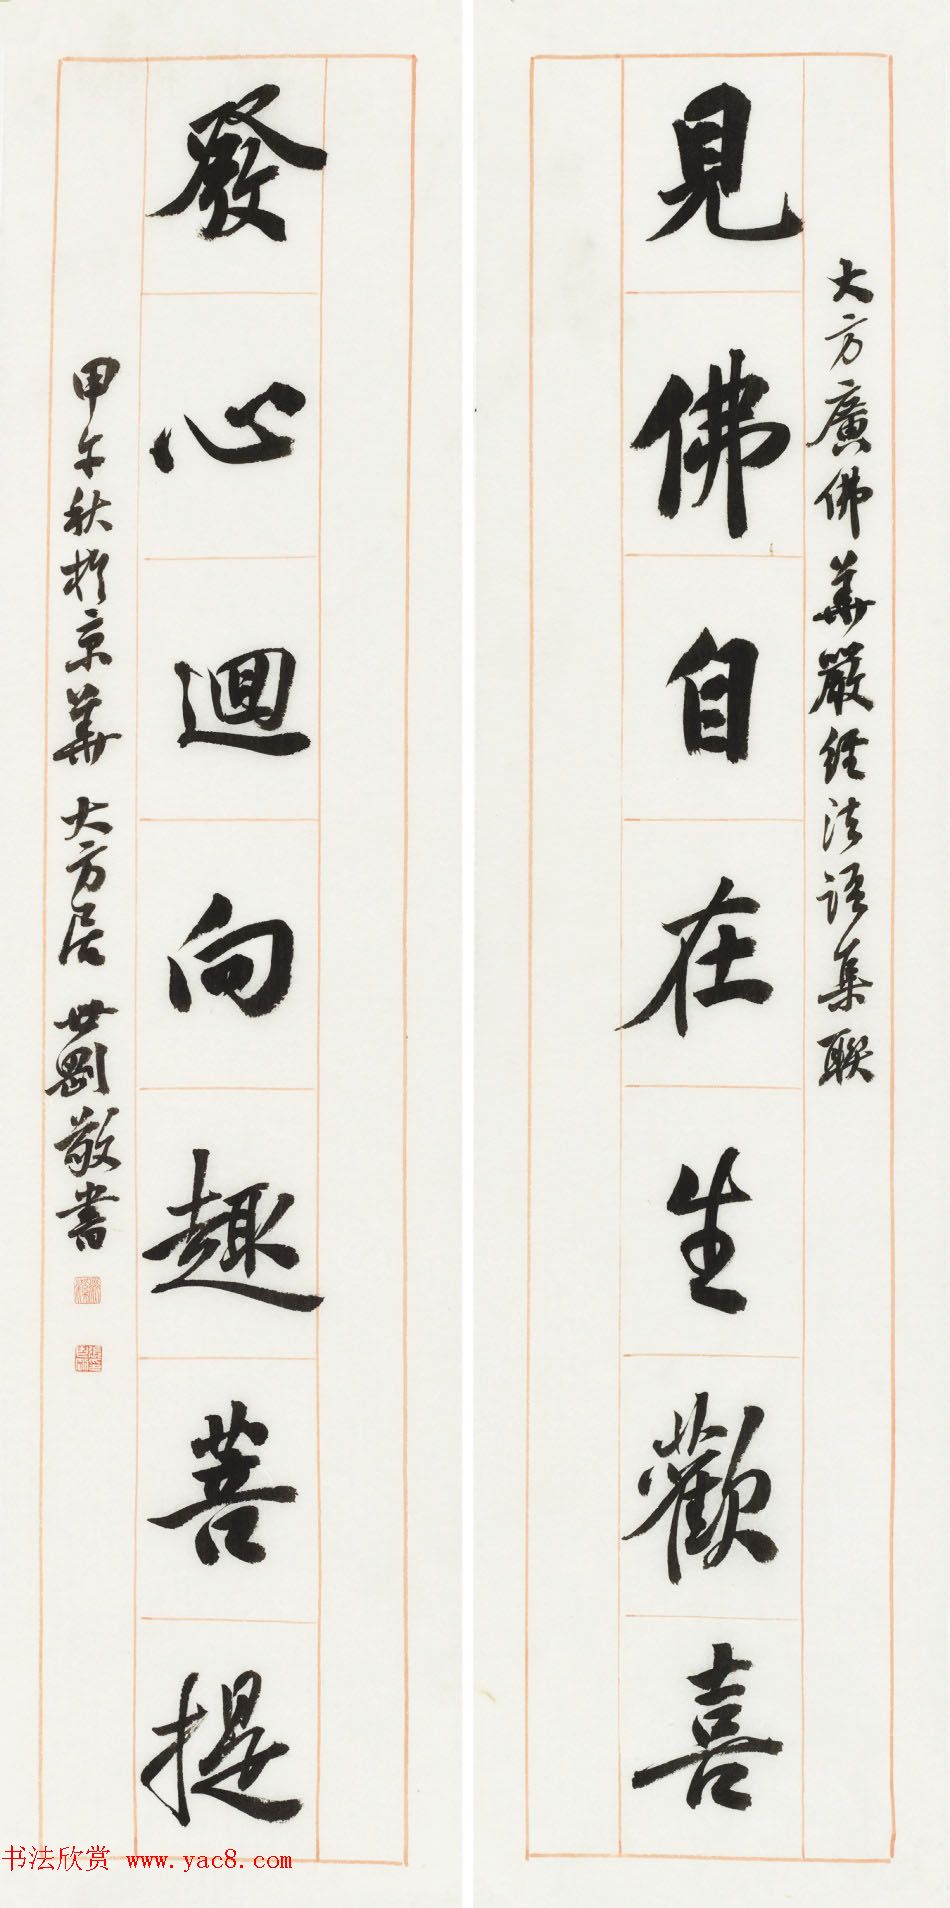 大方廣佛華嚴經法語集聯
見佛自在生歡喜
發心迴向趣菩提
甲午秋於京華 大方居 世剛敬書
书法欣赏 www.yac8.com